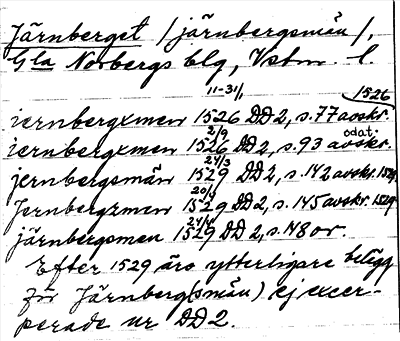 Järnberget /järnbergsmän/,
Gla Norbergs blg, Vstm. l.
11-31/1 1526
iernbergxmen 1526 DD2, s.77 avskr.
2/9 odat.
iernbergxmen 1526 DD2, s.93 avskr.
24/3
jernbergsmän 1529 DD2, s.142 avskr. 1529
20/
Jernbergzmen 1529 DD2, s.145 avskr. 1529
24/4
järnbergsmen 1529 DD2, s.148 or.
Efter 1529 äro ytterligare belägg
för Järnberg(smän) ej excer-
perade ur DD2.